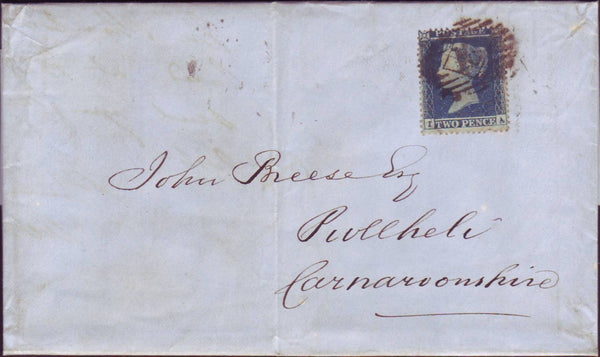 POSTAGE
TWO PENCE
John Breese Esq
Pwllheli
Carnarvonshire